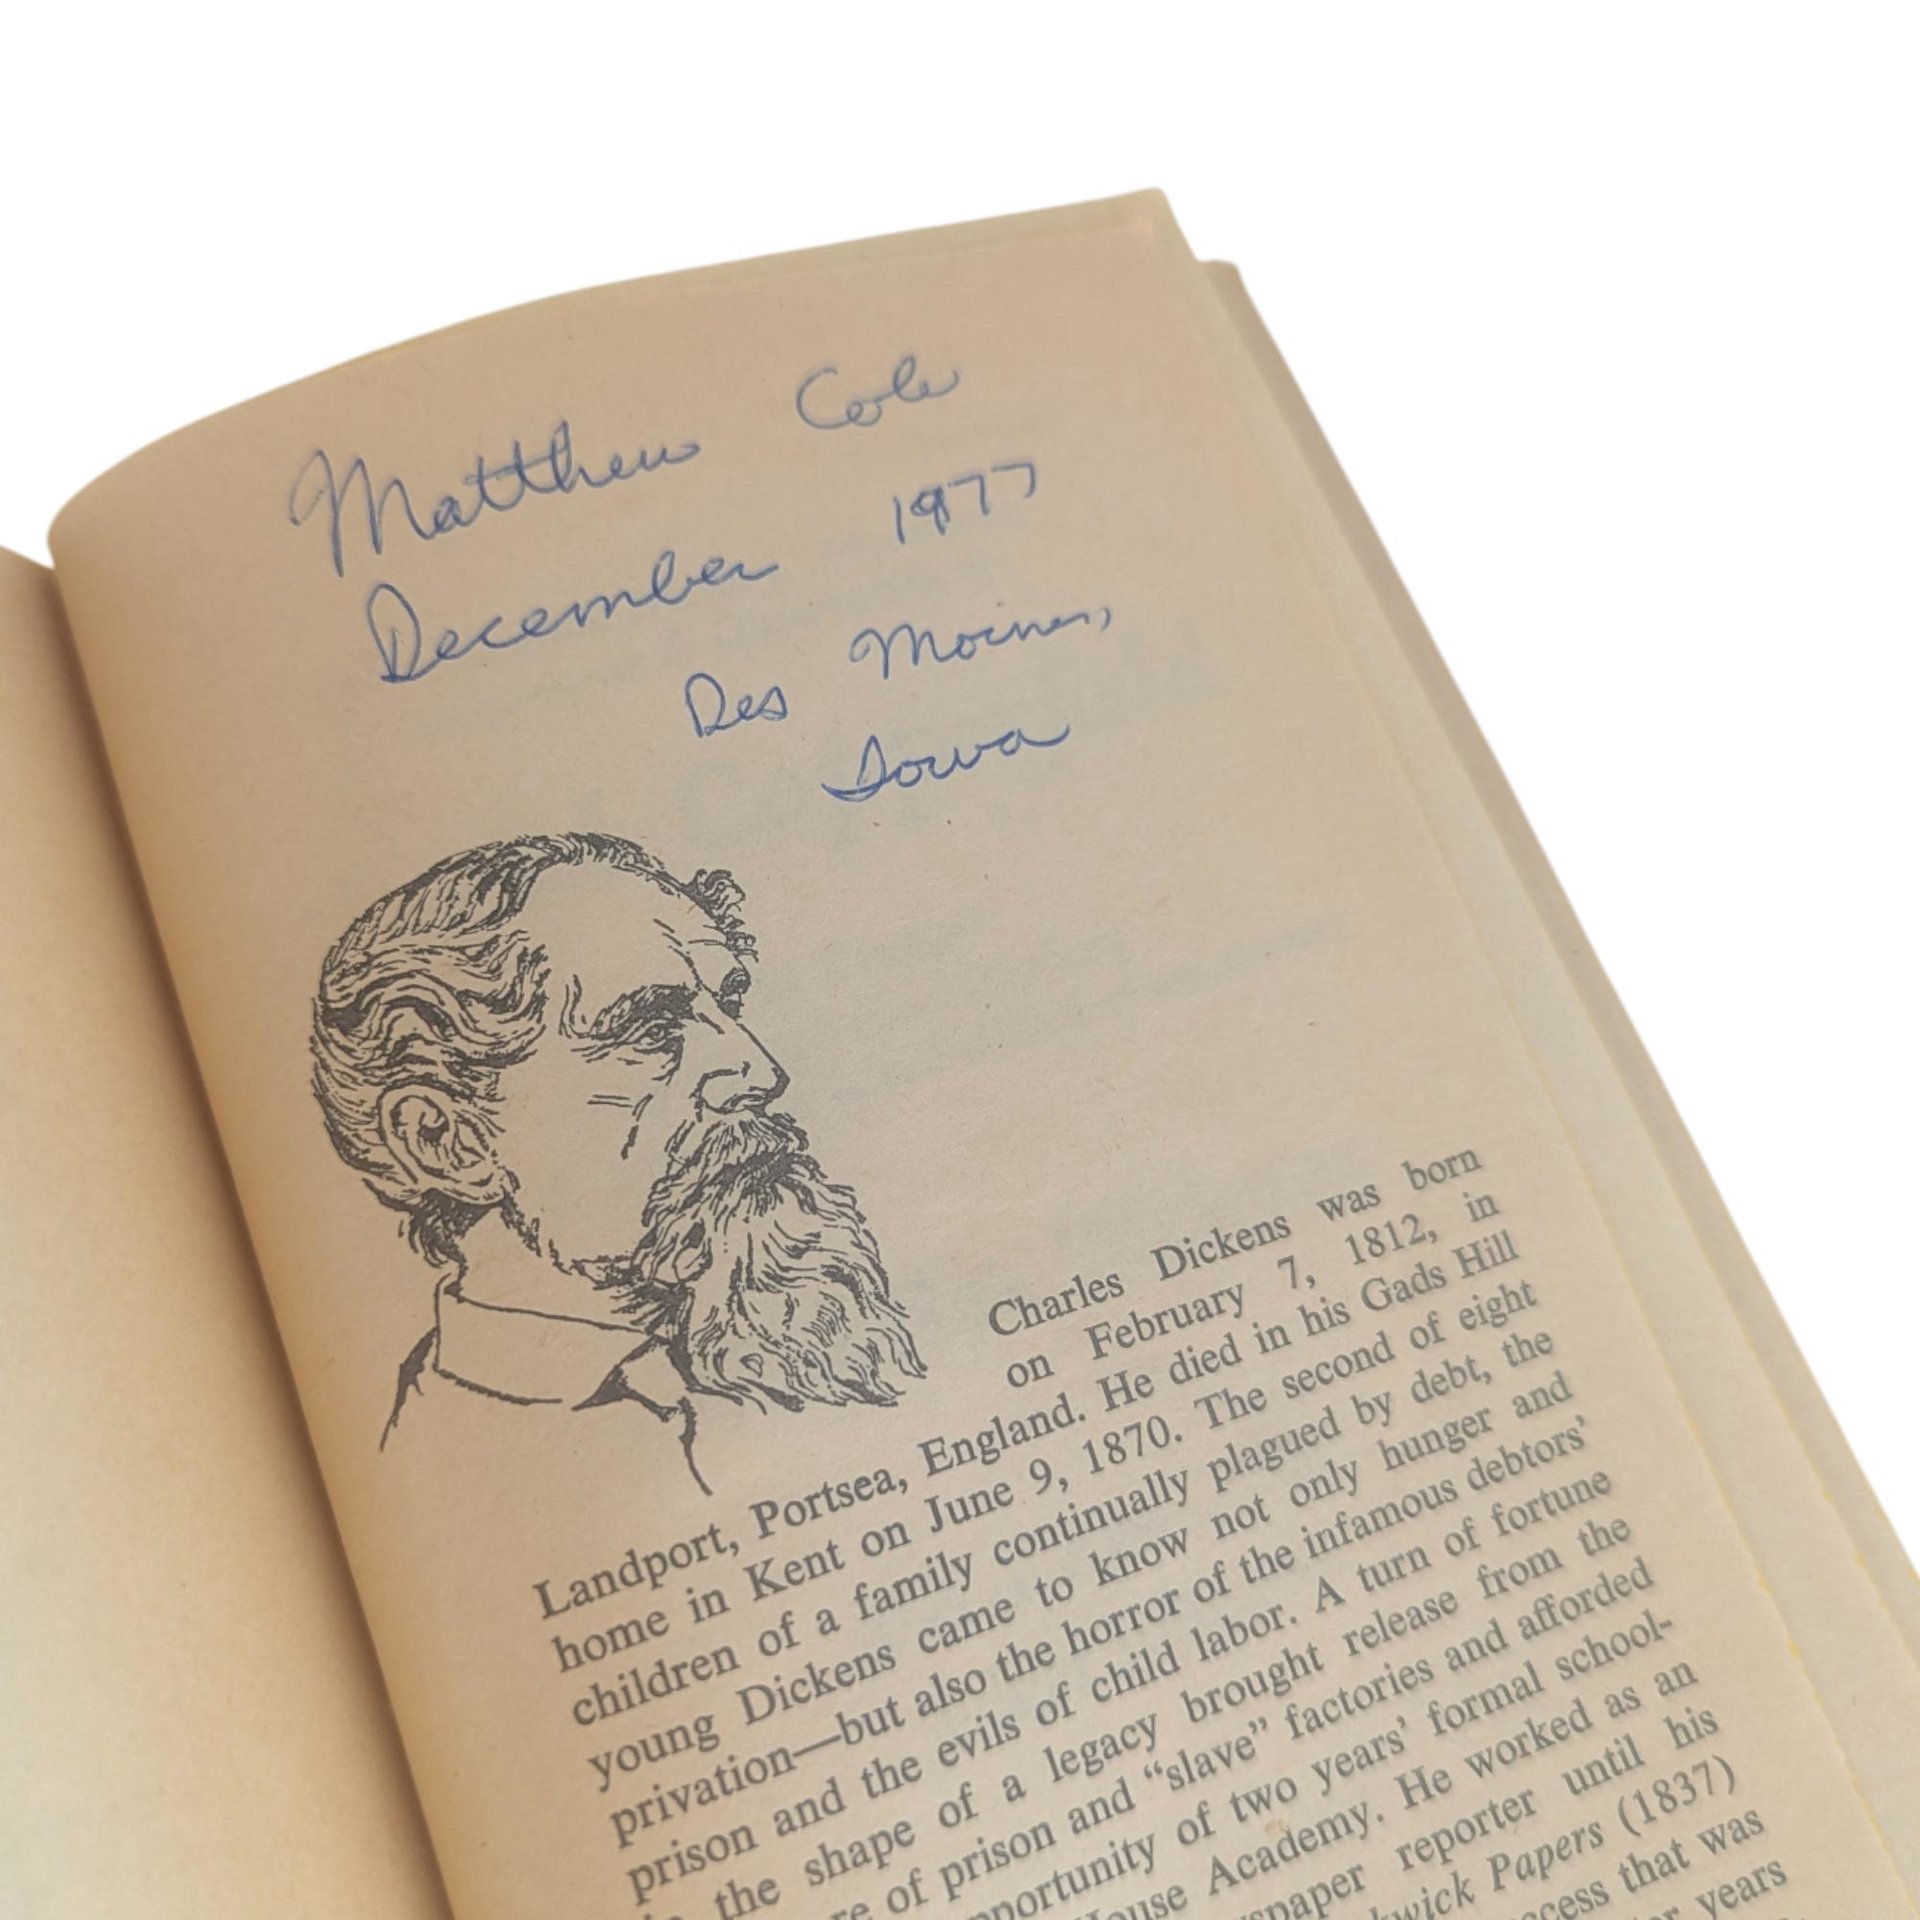 Matthew Cole
December 1977
Des Moines,
Iowa
Charles Dickens was born
on February 7, 1812, in
Landport, Portsea, England. He died in his Gads Hill
home in Kent on June 9, 1870. The second of eight
children of a family continually plagued by debt, the
young Dickens came to know not only hunger and
privation—but also the horror of the infamous debtors’
prison and the evils of child labor. A turn of fortune
in the shape of a legacy brought release from the
of prison and “slave” factories and afforded
opportunity of two years’ formal school-
House Academy. He worked as an
reporter until his
Papers (1837)
that was
years